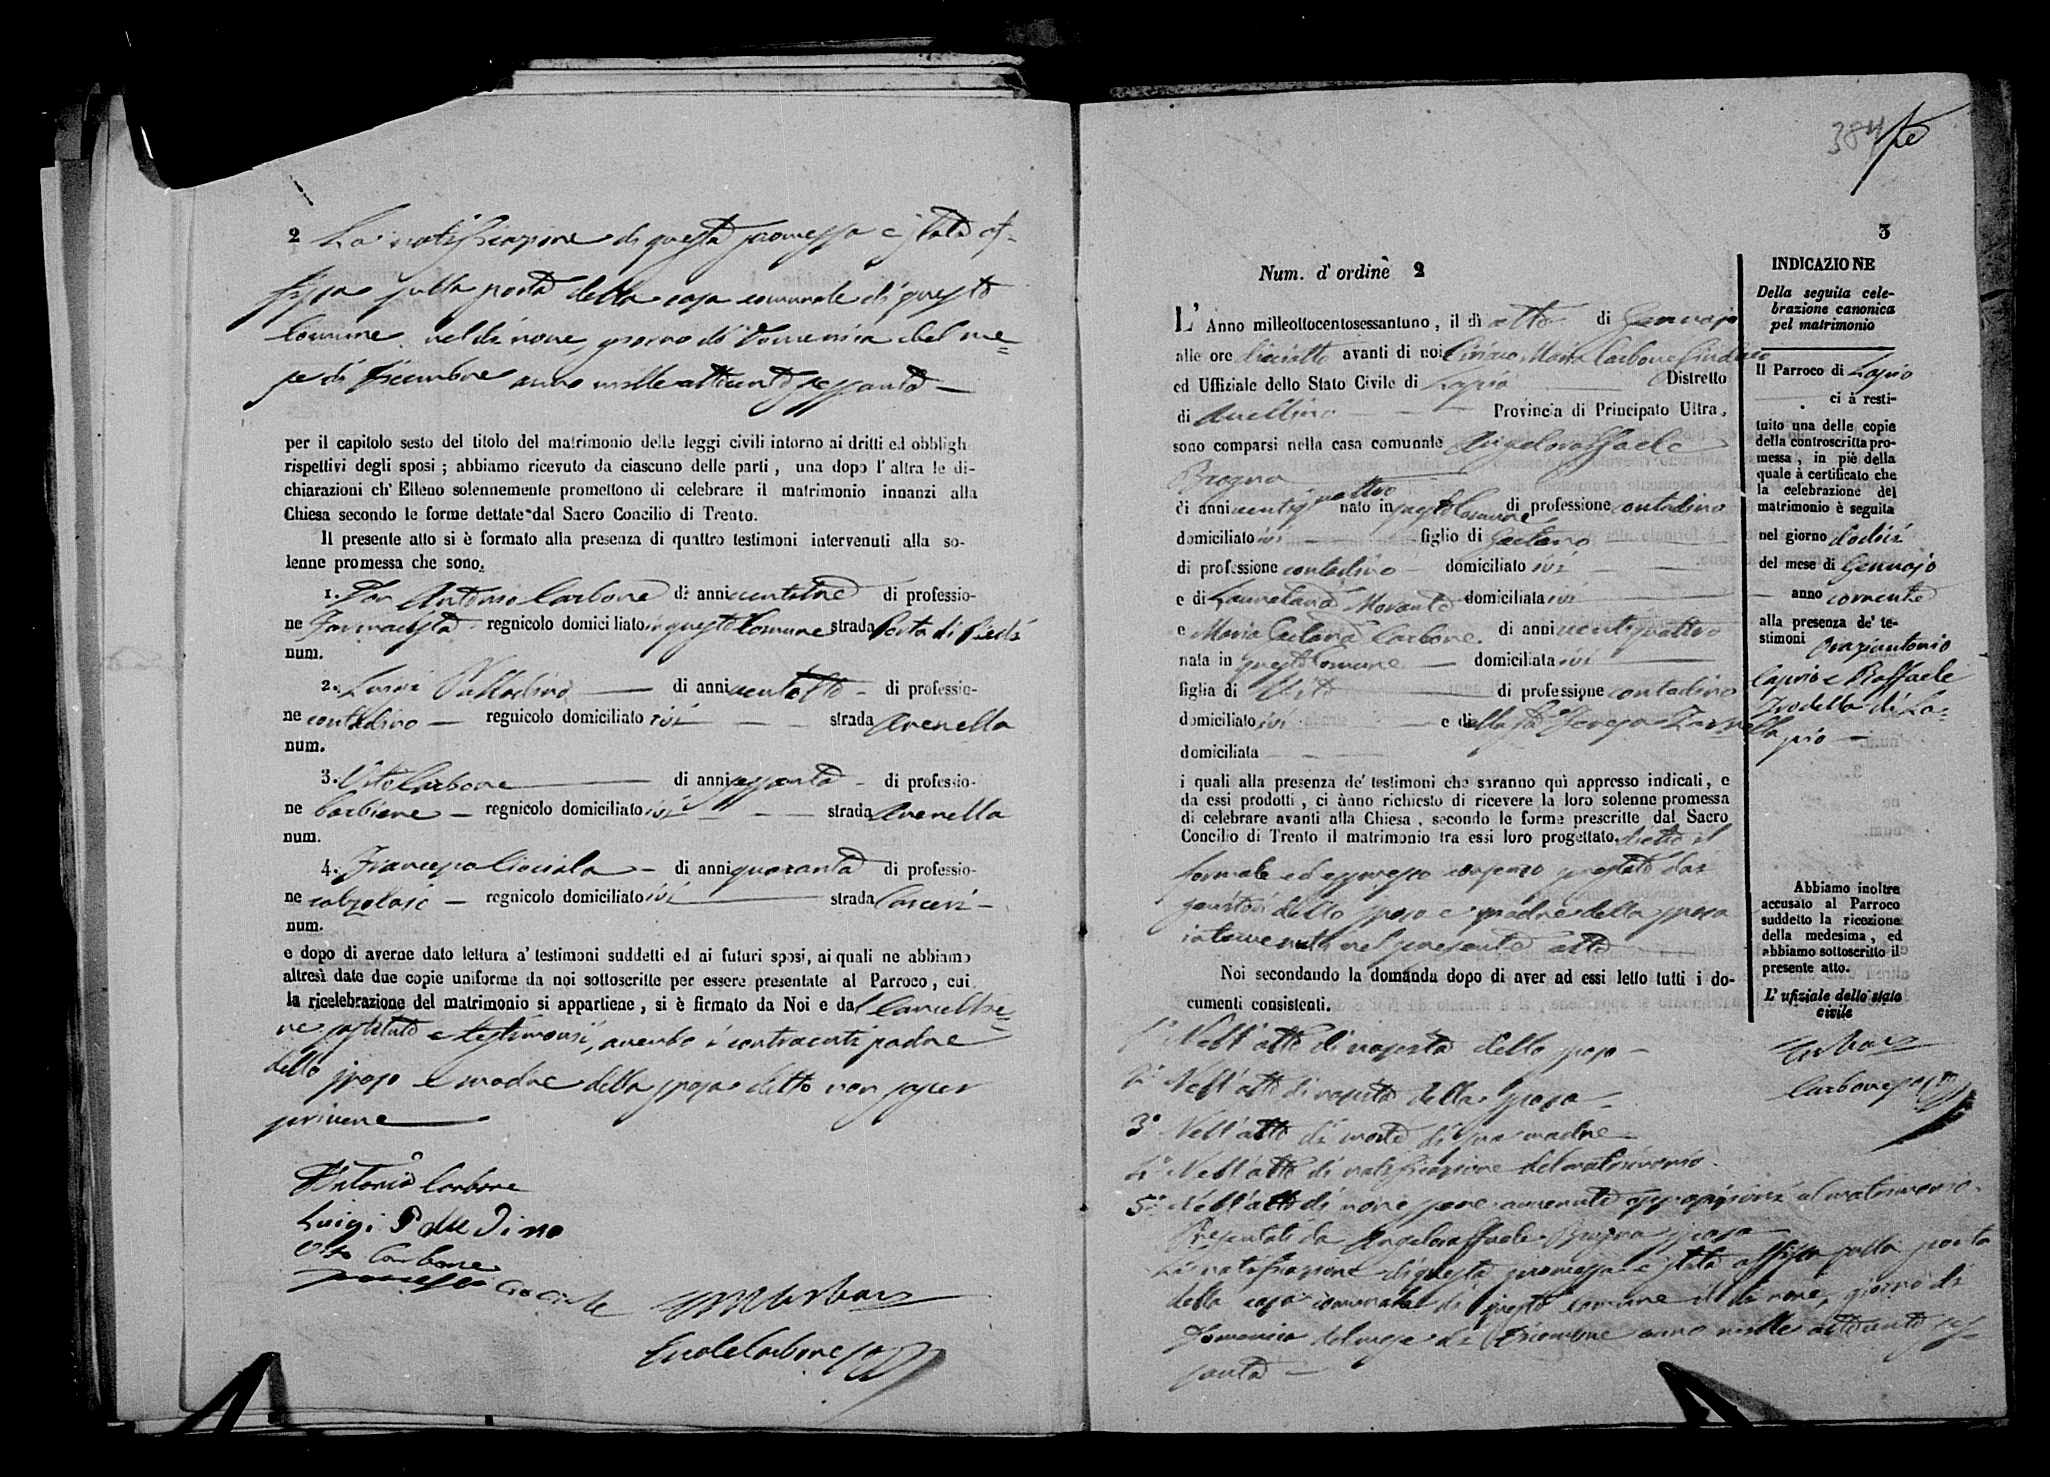 2 La notificazione di questa promessa è stata af-
fissa sulla porta della casa comunale di questo
Comune nel dì nove, giorno di Domenica del me=
se di Dicembre anno milleottocento sessanta —
per il capitolo sesto del titolo del matrimonio delle leggi civili intorno ai dritti ed obbligh
rispettivi degli sposi ; abbiamo ricevuto da ciascuno delle parti , una dopo l' altra le di-
chiarazioni ch' Elleno solennemente promettono di celebrare il matrimonio innanzi alla
Chiesa secondo le forme dettate dal Sacro Concilio di Trento.
Il presente atto si è formato alla presenza di quattro testimoni intervenuti alla so-
lenne promessa che sono.
1. Don Antonio Carbone di anni ventitre di professio-
ne Farmacista regnicolo domiciliato in questo Comune strada Porta di Piedi
num.
2. Luigi Palladino — di anni ventotto - di professio-
ne contadino — regnicolo domiciliato ivi — - strada Arenella
num.
3. Vito Carbone — di anni sessanta - di professio-
ne Barbiere — regnicolo domiciliato ivi - - — strada Arenella
num.
4. Francesco Ciociola — di anni quaranta di professio-
ne calzolaio — regnicolo domiciliato ivi — strada Carceri —
num.
e dopo di averne dato lettura a' testimoni suddetti ed ai futuri sposi, ai quali ne abbiamo
altresì date due copie uniforme da noi sottoscritte per essere presentate al Parroco , cui
la ricelebrazione del matrimonio si appartiene , si è firmato da Noi e dal Cancellie=
re sostituto e testimonii, avendo i contraenti padre
dello sposo e madre della sposa detto non saper
scrivere —
Antonio Carbone
Luigi Palladino
Vito Carbone
Francesco Ciociola
Carbone
384
3
Num. d' ordine 2
L' Anno milleottocentosessantuno , il dì otto di Gennajo
alle ore diciotto avanti di noi Ciriaco Maria Carbone Sindaco
ed Uffiziale dello Stato Civile di Lapio — Distretto
di Avellino — — — Provincia di Principato Ultra,
sono comparsi nella casa comunale Angeloraffaele
Brogna
di anni ventiquattro nato in questo Comune di professione contadino
domiciliato ivi — figlio di Gaetano —
di professione contadino — domiciliato ivi — —
e di Lauretana Morante domiciliata ivi —
e Maria Gaetana Carbone di anni ventiquattro
nata in questo Comune — domiciliata ivi —
figlia di Vito — di professione contadino
domiciliato ivi — e della fu Teresa Zarrella
domiciliata — — —
i quali alla presenza de' testimoni che saranno quì appresso indicati , e
da essi prodotti , ci ànno richiesto di ricevere la loro solenne promessa
di celebrare avanti alla Chiesa , secondo le forme prescritte dal Sacro
Concilio di Trento il matrimonio tra essi loro progettato. dietro il
formale ed espresso consenso prestato dai
genitori dello sposo e padre della sposa
intervenuti nel presente atto —
Noi secondando la domanda dopo di aver ad essi letto tutti i do-
cumenti consistenti.
1° Nell' atto di nascita dello sposo —
2° Nell' atto di nascita della sposa —
3° Nell' atto di morte di sua madre —
4° Nell' atto di notificazione del matrimonio.
5° Nell' atto di non essere avvenuta opposizione al matrimonio.
Presentati da Angeloraffaele Brogna sposo —
La notificazione di questa promessa è stata affissa sulla porta
della casa comunale di questo Comune il dì nove, giorno di
Domenica del mese di Dicembre anno mille ottocento ses-
santa —
INDICAZIONE
Della seguita cele-
brazione canonica
pel matrimonio
Il Parroco di Lapio
— ci à resti-
tuito una delle copie
della controscritta pro-
messa , in piè della
quale à certificato che
la celebrazione del
matrimonio è seguita
nel giorno dodici
del mese di Gennajo
— anno corrente
alla presenza de' te-
stimoni Oraziantonio
Caprio e Raffaele
Trodella di La=
pio —
Abbiamo inoltre
accusato al Parroco
suddetto la ricezione
della medesima , ed
abbiamo sottoscritto il
presente atto.
L' ufiziale dello stato
civile
Carbone